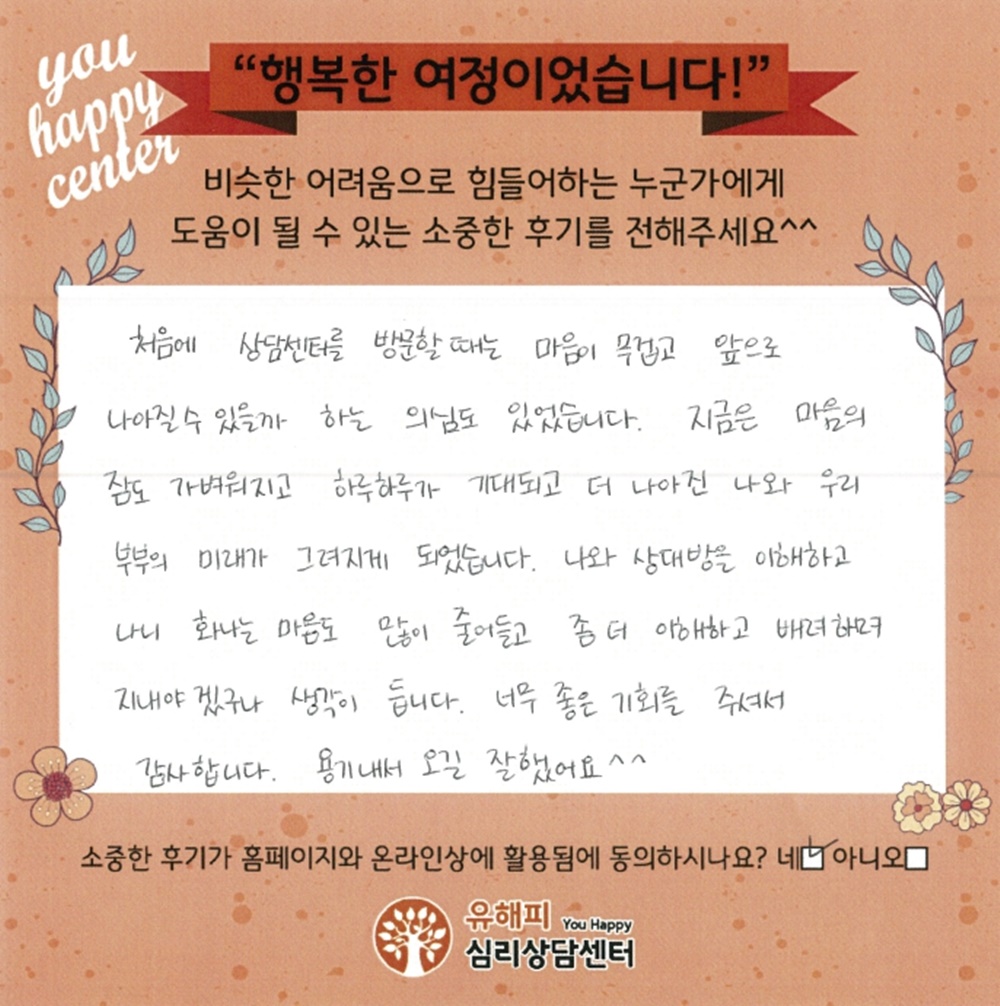 you
happy
center
“행복한 여정이었습니다!”
비슷한 어려움으로 힘들어하는 누군가에게
도움이 될 수 있는 소중한 후기를 전해주세요^^
처음에 상담센터를 방문할 때는 마음이 무겁고 앞으로
나아질 수 있을까 하는 의심도 있었습니다. 지금은 마음의
짐도 가벼워지고 하루하루가 기대되고 더 나아진 나와 우리
부부의 미래가 그려지게 되었습니다. 나와 상대방을 이해하고
나니 화나는 마음도 많이 줄어들고 좀 더 이해하고 배려하며
지내야 겠구나 생각이 듭니다. 너무 좋은 기회를 주셔서
감사합니다. 용기내서 오길 잘했어요^^
소중한 후기가 홈페이지와 온라인상에 활용됨에 동의하시나요? 네☑ 아니오□
유해피 You Happy
심리상담센터